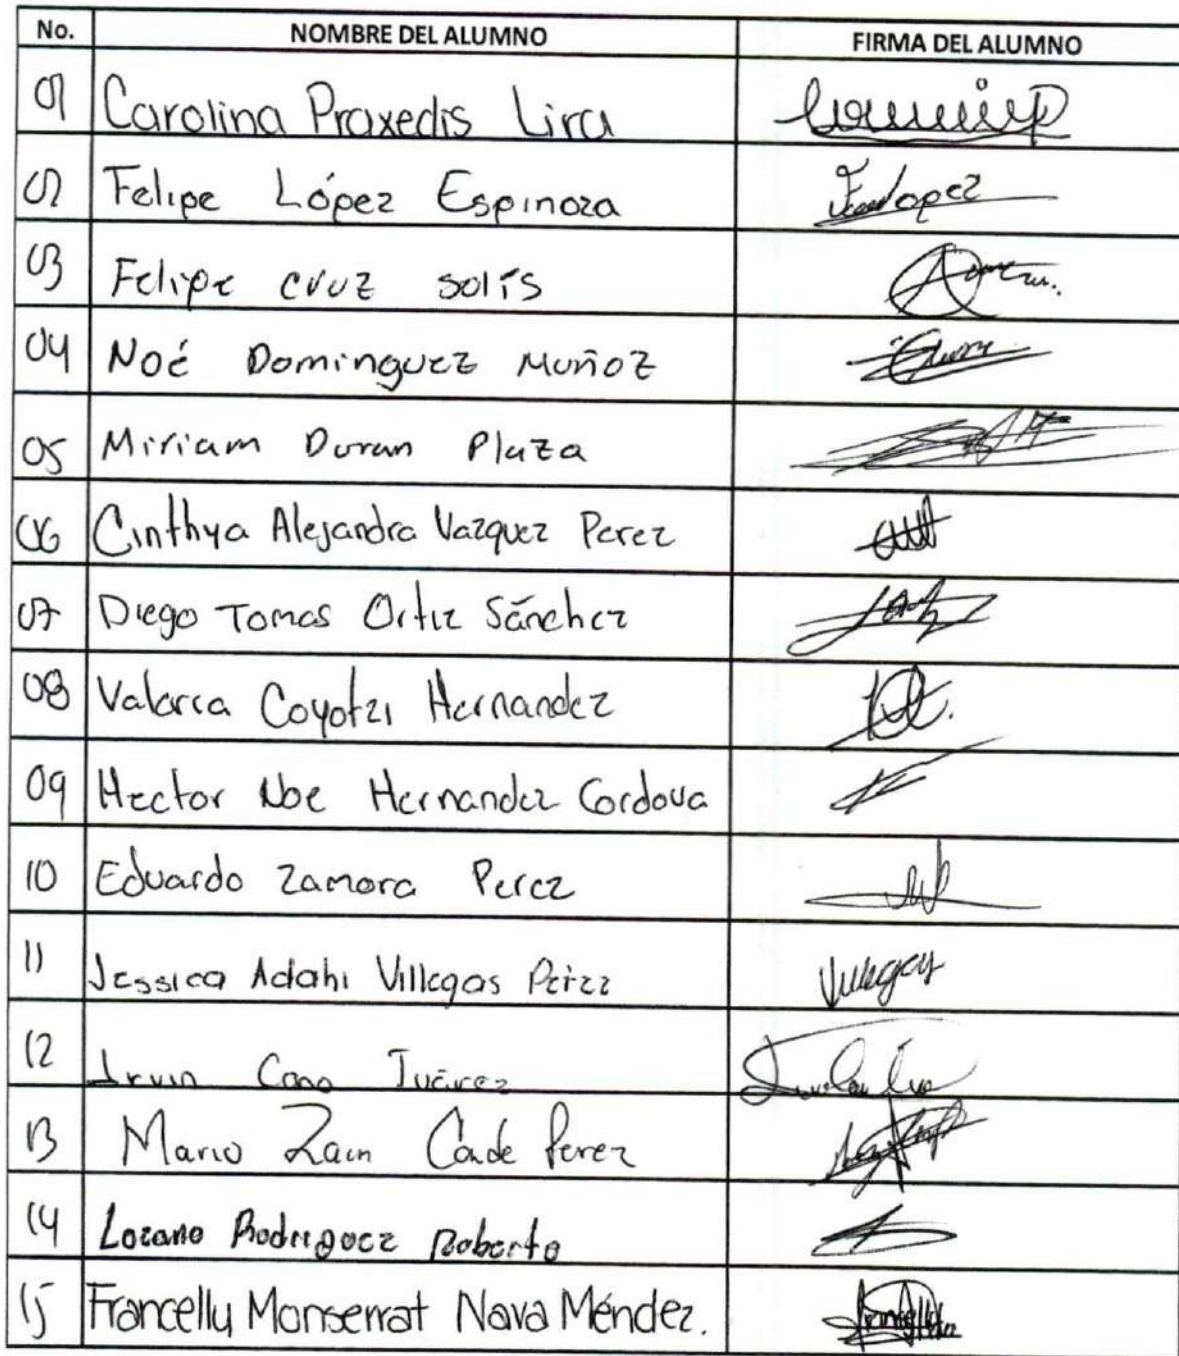 No. NOMBRE DEL ALUMNO FIRMA DEL ALUMNO
01 Carolina Praxedis Lira
02 Felipe López Espinoza
03 Felipe cruz solís
04 Noé Dominguez Muñoz
05 Miriam Duran Plaza
06 Cinthya Alejandra Vazquez Perez
07 Diego Tomas Ortiz Sánchez
08 Valeria Coyotzi Hernandez
09 Hector Noe Hernandez Cordova
10 Eduardo Zamora Perez
11 Jessica Adahi Villegas Pérez Villegas
12 Irvin Cano Juárez
13 Mario Zain Conde Perez
14 Lozano Rodriguez Roberto
15 Francelly Monserrat Nava Méndez.